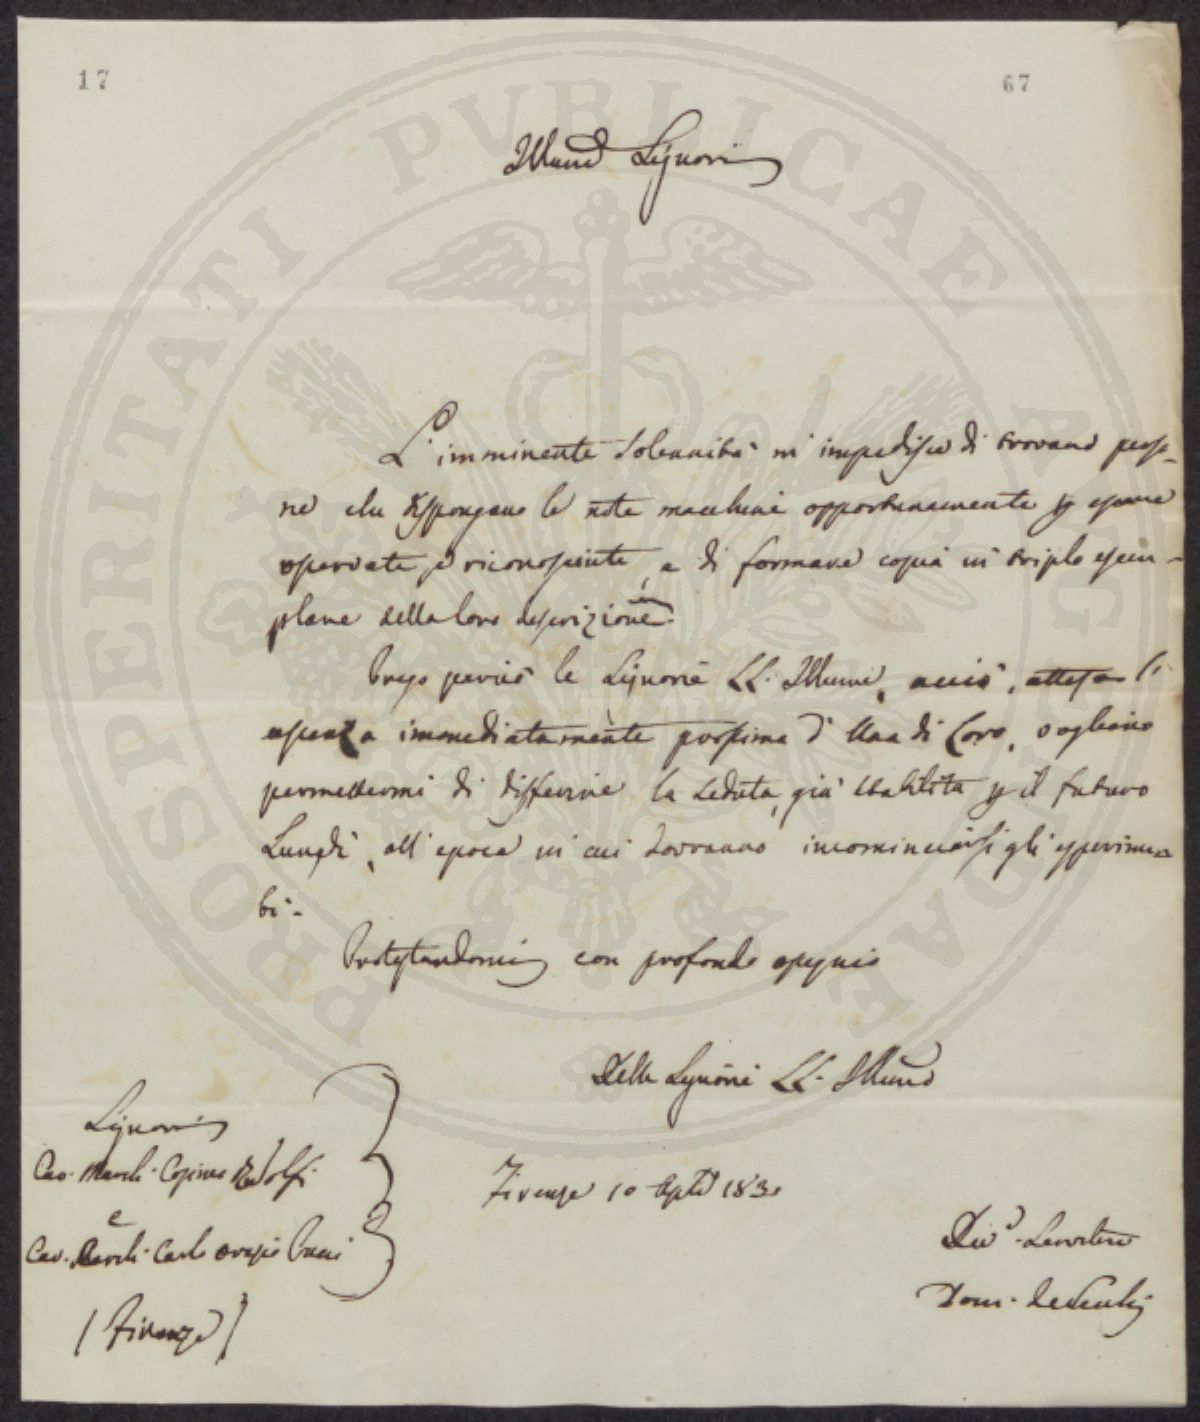 17
67
PROSPERITATI PUBLICAE AUGENDAE
Illmi Signori
L'imminente Solennità m'impedisce di trovare perso-
ne che dispongano le note macchine opportunamente p essere
osservate, e riconosciute, e di formare copia in triplo esem-
plare della loro descrizione.
Prego perciò le Signorie LL. Illme, acciò, attesa l'
assenza immediatamente prossima d'Una di Loro, vogliano
permettermi di differire la seduta, già stabilita p il futuro
Lunedì, all'epoca in cui dovranno incominciarsi gli esperimen-
ti.
Protestandomi con profondo ossequio
Delle Signorie LL. Illme
Signori
Cav. March. Cosimo Ridolfi
e
Cav. March. Carlo Pucci
(Firenze)
Firenze 10 1830
Servitore
Dom.